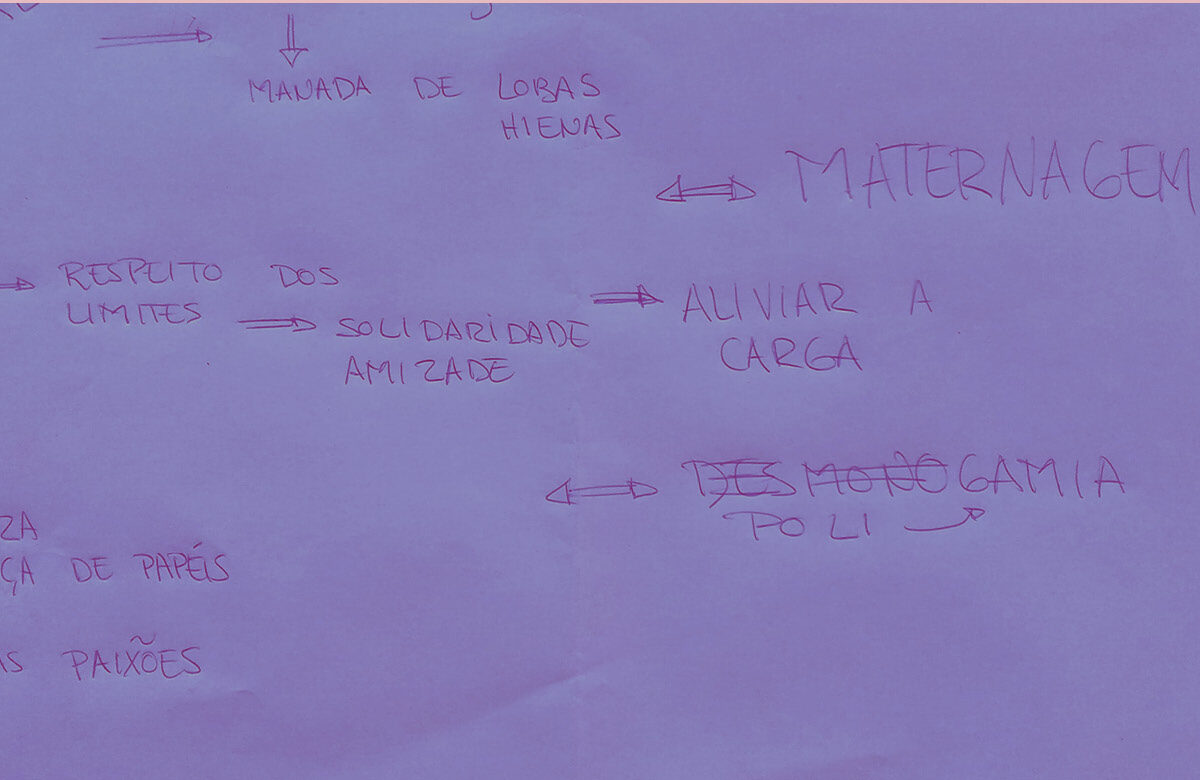 MANADA DE LOBAS
HIENAS
MATERNAGEM
RESPEITO DOS
LIMITES
SOLIDARIDADE
AMIZADE
ALIVIAR A
CARGA
DESMONOGAMIA
POLI
ZA
ÇA DE PAPÉIS
AS PAIXÕES